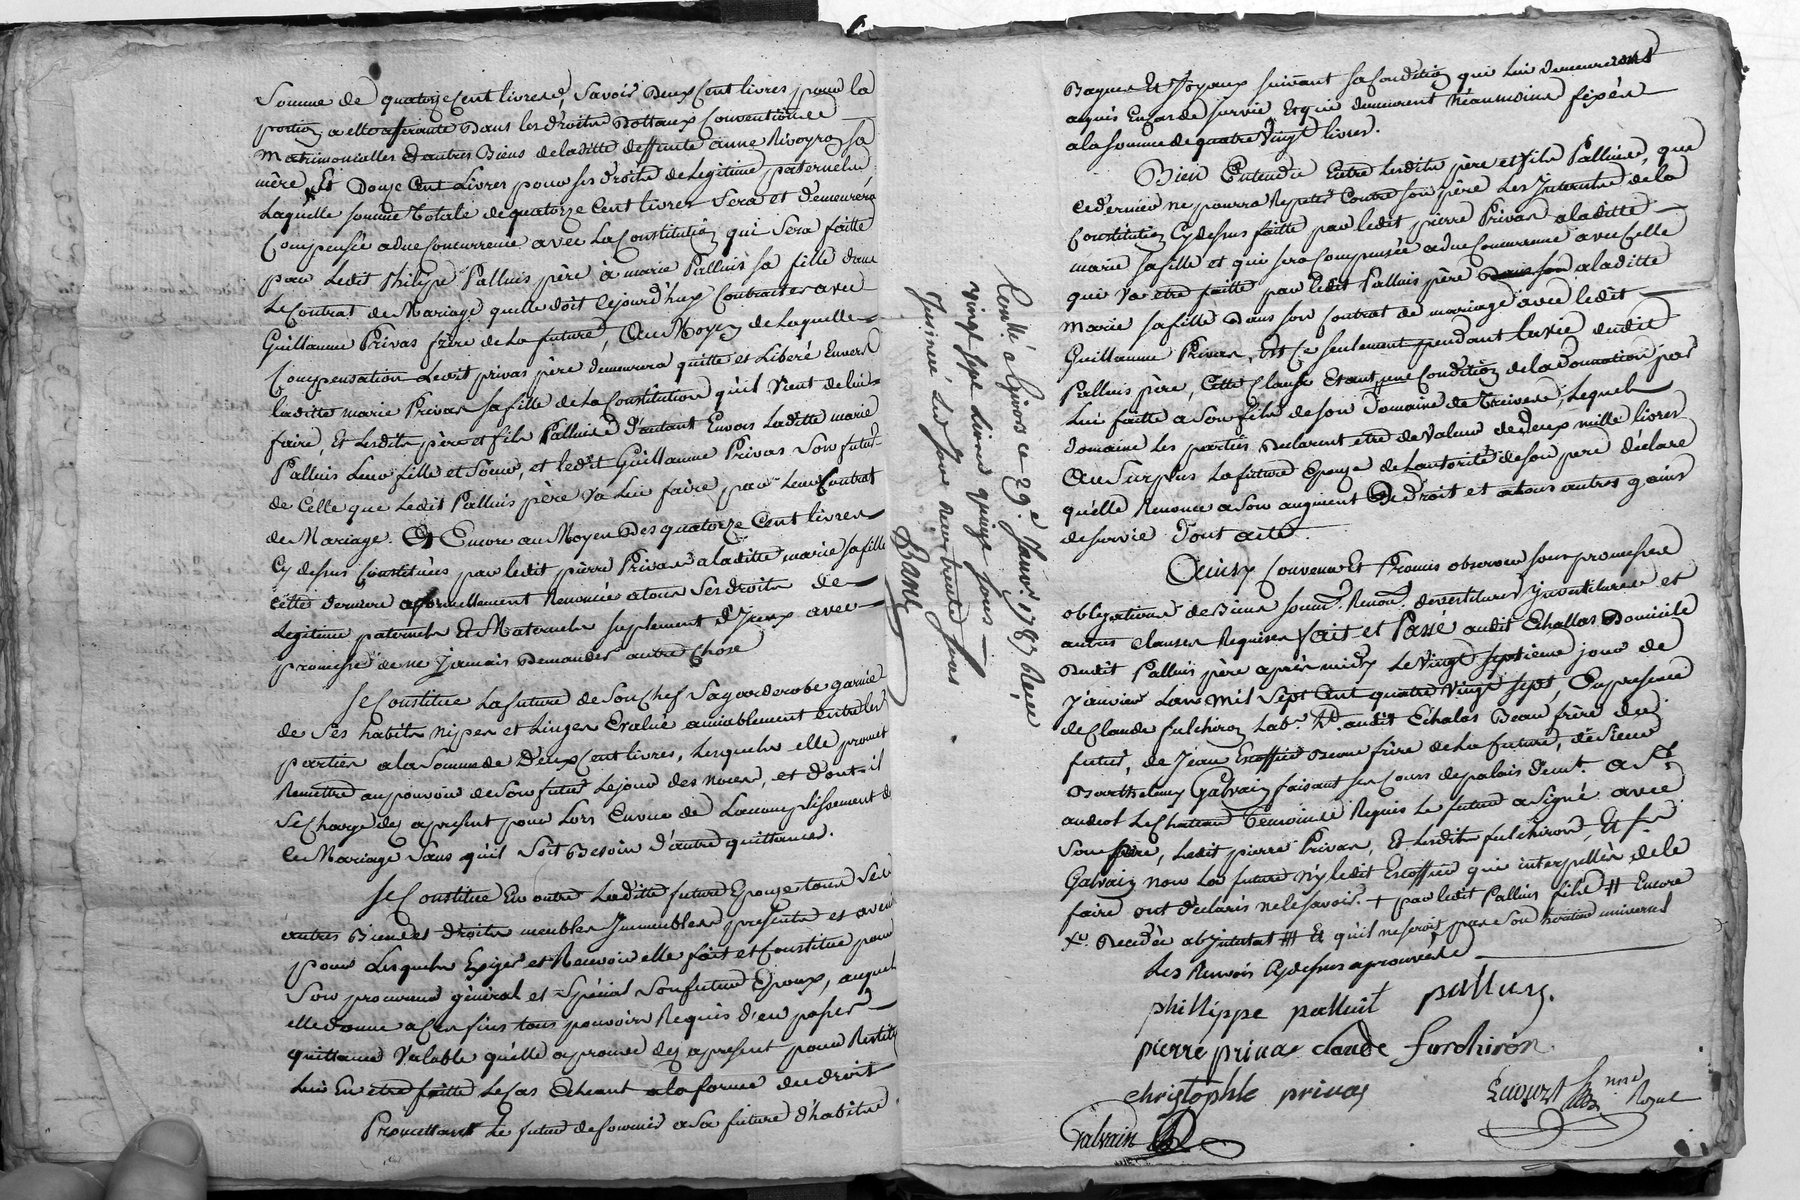 Somme de quatorze Cent livres, Savoir Deux Cent livres pour la
portion a elle afferante Dans les droits Dottaux Conventions
Matrimonialles Et autres Biens de laditte deffunte anne Rivoyron sa
mère, Et Douze Cent Livres pour ses droits de Legitime paternelle,
Laquelle somme Totale de quatorze Cent livres Sera et demeurera
Compensée a due Concurrence avec La Constitution qui Sera faitte
par Ledit Philipe Palluis père à marie Palluis sa fille dans
Le Contrat de Mariage qu'elle doit Cejourd'huy Contracter avec
Guillaume Privas frère de La future, Au Moyen de Laquelle
Compensation Ledit privas père demeurera quitte et Libéré Envers
laditte marie Privas sa fille de la Constitution qu'il Vient de lui
faire, Et Lesdits père et fils Palluis d'autant Envers Laditte marie
Palluis Leur fille et Soeur, et ledit Guillaume Privas Son futur
de Celle que Ledit Palluis père Va Lui faire par Leur Contrat
de Mariage. Et Encore au Moyen Des quatorze Cent livres
Cy dessus Constituées par ledit pierre Privas a laditte marie sa fille
cette derniere a formellement Renoncée a tous Ses droits de
Legitime paternels Et Maternels suplement d'Iceux avec
promesse de ne Jamais Demander autre Chose
Se Constitue La future de Son Chef Sa garderobe garnie
de Ses habits nipes et Linges Evalué amiablement entre les
parties a la Somme de Deux Cent livres, Lesquels elle promet
Remettre au pouvoir de Son futur Le jour des noces, et dont il
Se Charge dez apresent pour Lors En vue de L'accomplissement de
Ce Mariage Sans qu'il Soit Besoin d'autre quittance.
Se Constitue En outre Laditte future Epouse tous Ses
autres Biens et droits meubles Immeubles présents et avenir
pour Lesquels Exiger et Recevoir elle fait et Constitue pour
Son procureur général et Spécial Son futur Epoux, auquel
elle donne a Ces fins tous pouvoirs Requis d'en passer
quittance Valable qu'elle aprouve dez apresent pour Restit
Lui En etre faitte Le Cas Echeant a la forme du droit
Promettant Le futur de fournir a Sa future d'habits
Controllé a Givors ce 29e Janv. 1787 Reçu
vingt sept Livres quinze sous
Insinué Led. Jour Reçu trente sous
Bagues Et Joyaux suivant sa Condition qui Lui demeureront
aquis En Cas de Survie, Et qui demeurent Néanmoins fixés
a la somme de quatre Vingt livres.
Bien Entendu Entre Lesdits père et fils Palluis, que
Ce dernier ne pourra Repeter Contre son père Les Interets de la
Constitution Cy dessus faitte par ledit pierre Privas a laditte
marie sa fille et qui sera Compensée a due Concurrence avec Celle
qui Va etre faitte par ledit Palluis père a laditte
Marie sa fille Dans son Contrat de mariage avec ledit
Guillaume Privas, Et Ce seulement pendant la vie dudit
Palluis père, Cette Clause Etant une Condition de la donnation par
Lui faitte a Son fils de son Domaine de Treives, Lequel
domaine Les parties Declarent etre de Valeur de Deux mille livres
Au Surplus La future Epouse de L'autorité de son pere declare
qu'elle Renonce a Son augment De droit et a tous autres gains
de survie Tout acte.
Ainsy Convenu Et Promis observer sous promesses
obligations de Biens soum. Renon. devestitures Investitures et
autres Clauses Requises fait et Passé audit Echallas Domicile
Dudit Palluis père après midy Le Vingt Septieme jour de
Janvier L'an Mil Sept Cent quatre Vingt Sept, En presence
de Claude fulchiron Lab. Dt. audit Echalas Beau frère du
futur, de Jean Escoffier Beau frère de La future, de Sieur
Barthelemy Galvain faisant ses Cours de palais deurt. a St.
andeol Le Chateau Temoins Requis Le futur a Signé avec
Son père, Ledit pierre Privas, Et Lesdits fulchiron, Et Sr
Galvain non La future ny ledit Escoffier qui interpellés de le
faire ont déclarés ne le savoir. + par ledit Palluis fils # Encore
Decedée ab Intestat ### Et qu'il ne seroit pas Son heritier universel
Les Renvois Cy dessus aprouvés
phillippe palluit palluis.
pierre privas claude furchiron.
christophle privas
Galvain